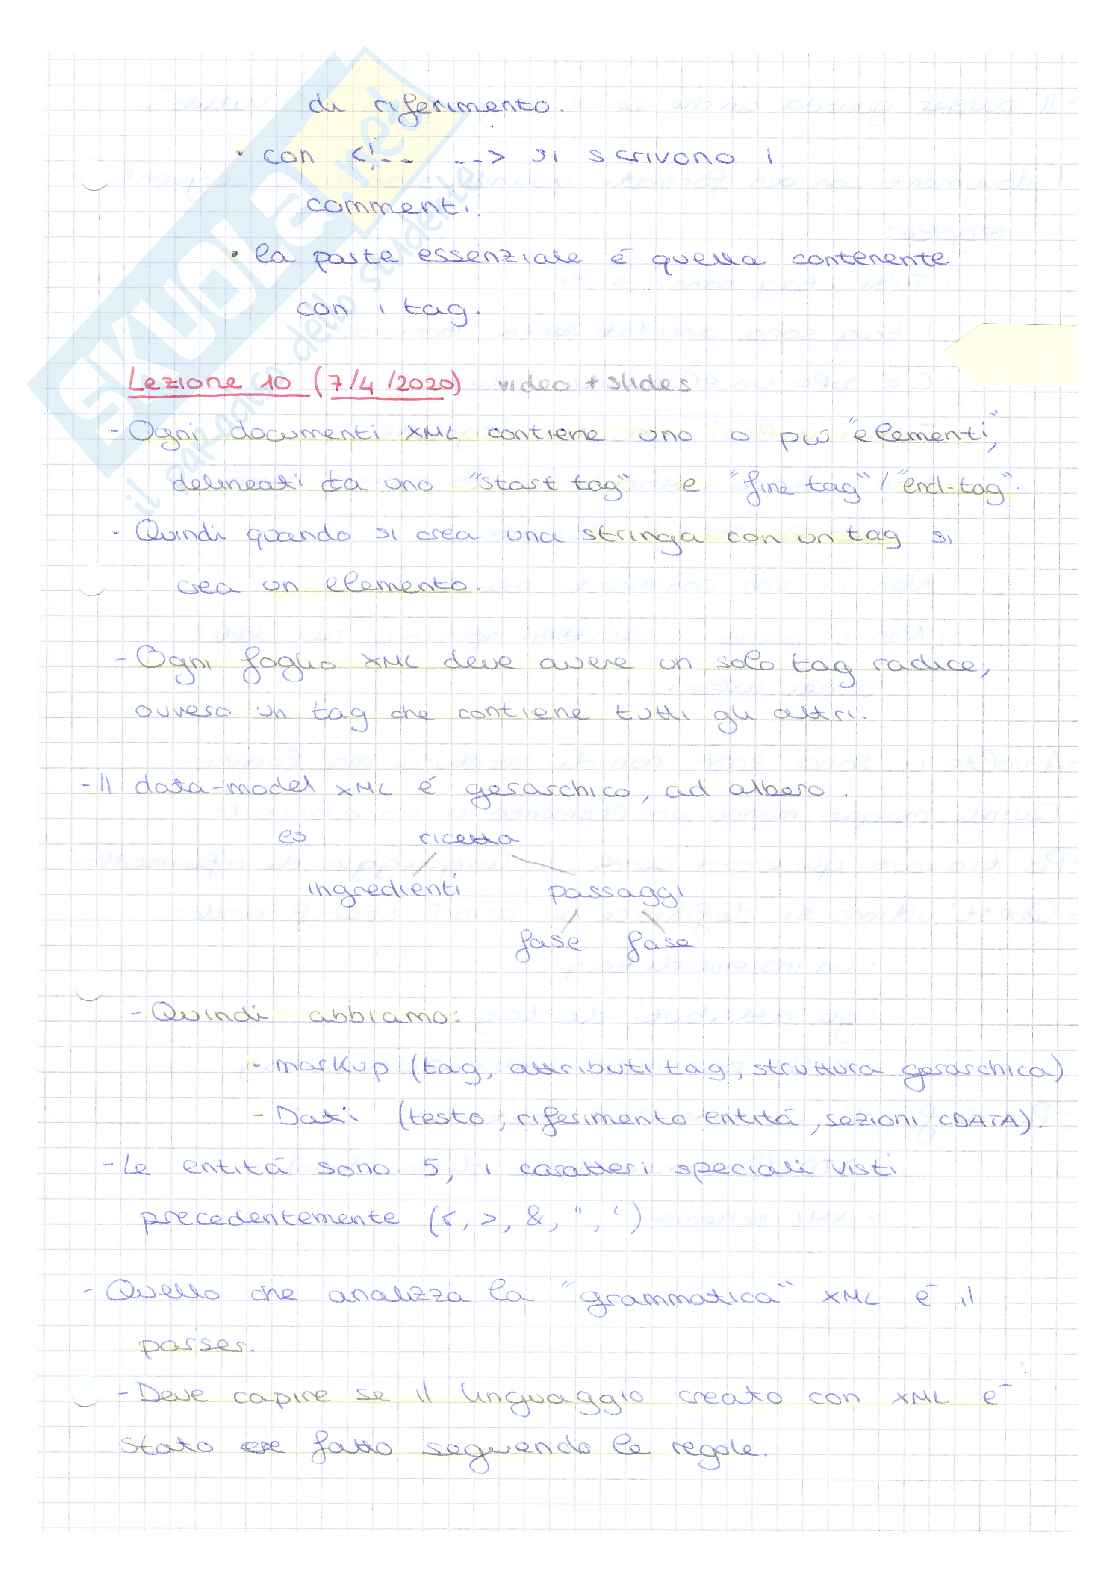 di riferimento.
• con <!-- --> si scrivono i
commenti.
• la parte essenziale é quella contenente
con i tag.
Lezione 10 (7/4/2020) video + slides
- Ogni documenti XML contiene uno o più "elementi",
delineati da uno "start tag" e "fine tag" / "end-tag".
- Quindi quando si crea una stringa con un tag si
crea un elemento.
- Ogni foglio XML deve avere un solo tag radice,
ovvero un tag che contiene tutti gli altri.
- Il data-model XML é gerarchico, ad albero.
es ricetta
ingredienti passaggi
fase fase
- Quindi abbiamo:
- markup (tag, attributi tag, struttura gerarchica)
- Dati (testo, riferimento entitá, sezioni CDATA).
- Le entitá sono 5, i caratteri speciali visti
precedentemente (<, >, &, ", ')
- Quello che analizza la "grammatica" XML é il
parser.
- Deve capire se il linguaggio creato con XML é
stato fatto seguendo le regole.
SKUOLA.net
il paradiso dello studente